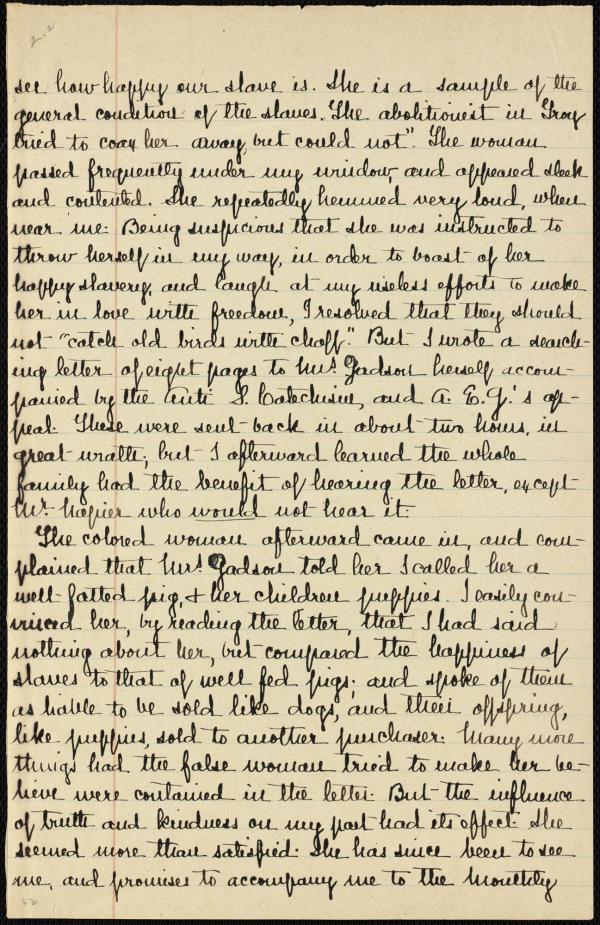 2.2
see how happy our slave is. She is a sample of the
general condition of the slaves. The abolitionist in Troy
tried to coax her away, but could not". The woman
passed frequently under my window, and appeared sleek
and contented. She repeatedly hemmed very loud, when
near me. Being suspicious that she was instructed to
throw herself in my way, in order to boast of her
happy slavery, and laugh at my useless efforts to make
her in love with freedom, I resolved that they should
not "catch old birds with chaff." But I wrote a search-
ing letter of eight pages to Mrs. Gadson herself accom-
panied by the Anti S. Catechism, and A. E. G.'s ap-
peal. These were sent back in about two hours, in
great wrath; but I afterward learned the whole
family had the benefit of hearing the letter, except
Mr. Napier who would not hear it.
The colored woman afterward came in, and com-
plained that Mrs. Gadson told her I called her a
well-fatted pig, & her children puppies. I easily con-
vinced her, by reading the letter, that I had said
nothing about her, but compared the happiness of
slaves to that of well fed pigs; and spoke of them
as liable to be sold like dogs, and their offspring,
like puppies, sold to another purchaser. Many more
things had the false woman tried to make her be-
lieve were contained in the letter. But the influence
of truth and kindness on my part had its effect. She
seemed more than satisfied. She has since been to see
me, and promises to accompany me to the monthly